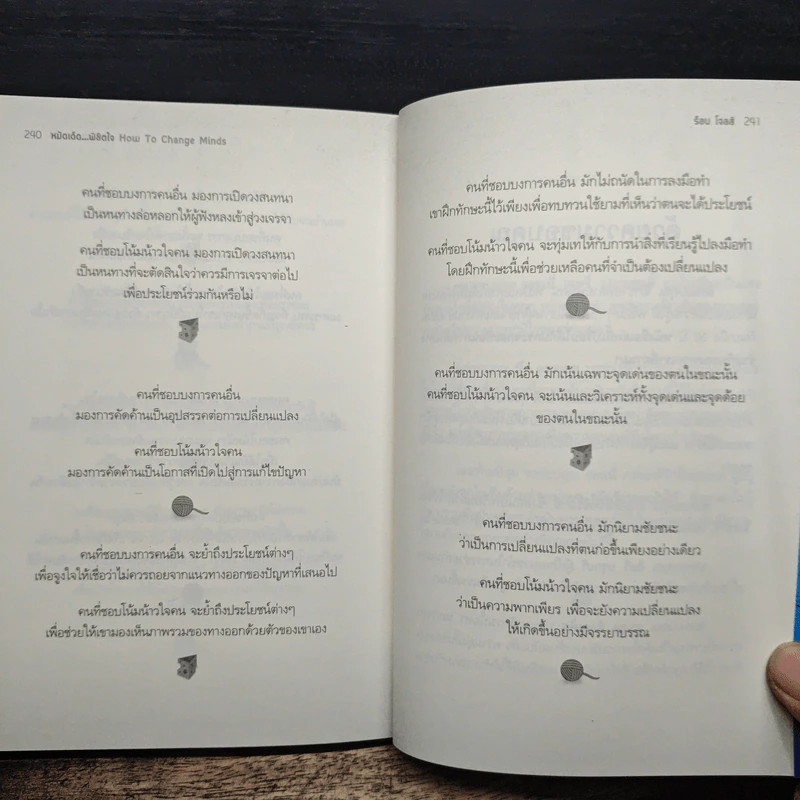 240 หมัดเด็ด...พิชิตใจ How To Change Minds
คนที่ชอบบงการคนอื่น มองการเปิดวงสนทนา
เป็นหนทางล่อหลอกให้ผู้ฟังหลงเข้าสู่วงเจรจา
คนที่ชอบโน้มน้าวใจคน มองการเปิดวงสนทนา
เป็นหนทางที่จะตัดสินใจว่าควรมีการเจรจาต่อไป
เพื่อประโยชน์ร่วมกันหรือไม่
คนที่ชอบบงการคนอื่น
มองการคัดค้านเป็นอุปสรรคต่อการเปลี่ยนแปลง
คนที่ชอบโน้มน้าวใจคน
มองการคัดค้านเป็นโอกาสที่เปิดไปสู่การแก้ไขปัญหา
คนที่ชอบบงการคนอื่น จะย้ำถึงประโยชน์ต่างๆ
เพื่อจูงใจให้เชื่อว่าไม่ควรถอยจากแนวทางออกของปัญหาที่เสนอไป
คนที่ชอบโน้มน้าวใจคน จะย้ำถึงประโยชน์ต่างๆ
เพื่อช่วยให้เขามองเห็นภาพรวมของทางออกด้วยตัวของเขาเอง
ร็อบ โจลส์ 241
คนที่ชอบบงการคนอื่น มักไม่ถนัดในการลงมือทำ
เขาฝึกทักษะนี้ไว้เพียงเพื่อทบทวนใช้ยามที่เห็นว่าตนจะได้ประโยชน์
คนที่ชอบโน้มน้าวใจคน จะทุ่มเทให้กับการนำสิ่งที่เรียนรู้ไปลงมือทำ
โดยฝึกทักษะนี้เพื่อช่วยเหลือคนที่จำเป็นต้องเปลี่ยนแปลง
คนที่ชอบบงการคนอื่น มักเน้นเฉพาะจุดเด่นของตนในขณะนั้น
คนที่ชอบโน้มน้าวใจคน จะเน้นและวิเคราะห์ทั้งจุดเด่นและจุดด้อย
ของตนในขณะนั้น
คนที่ชอบบงการคนอื่น มักนิยามชัยชนะ
ว่าเป็นการเปลี่ยนแปลงที่ตนก่อขึ้นเพียงอย่างเดียว
คนที่ชอบโน้มน้าวใจคน มักนิยามชัยชนะ
ว่าเป็นความพากเพียร เพื่อจะยังความเปลี่ยนแปลง
ให้เกิดขึ้นอย่างมีจรรยาบรรณ